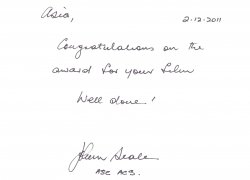 Asia, 2-12-2011
Congratulations on the
award for your film
Well done!
John Seale
ASC ACS.